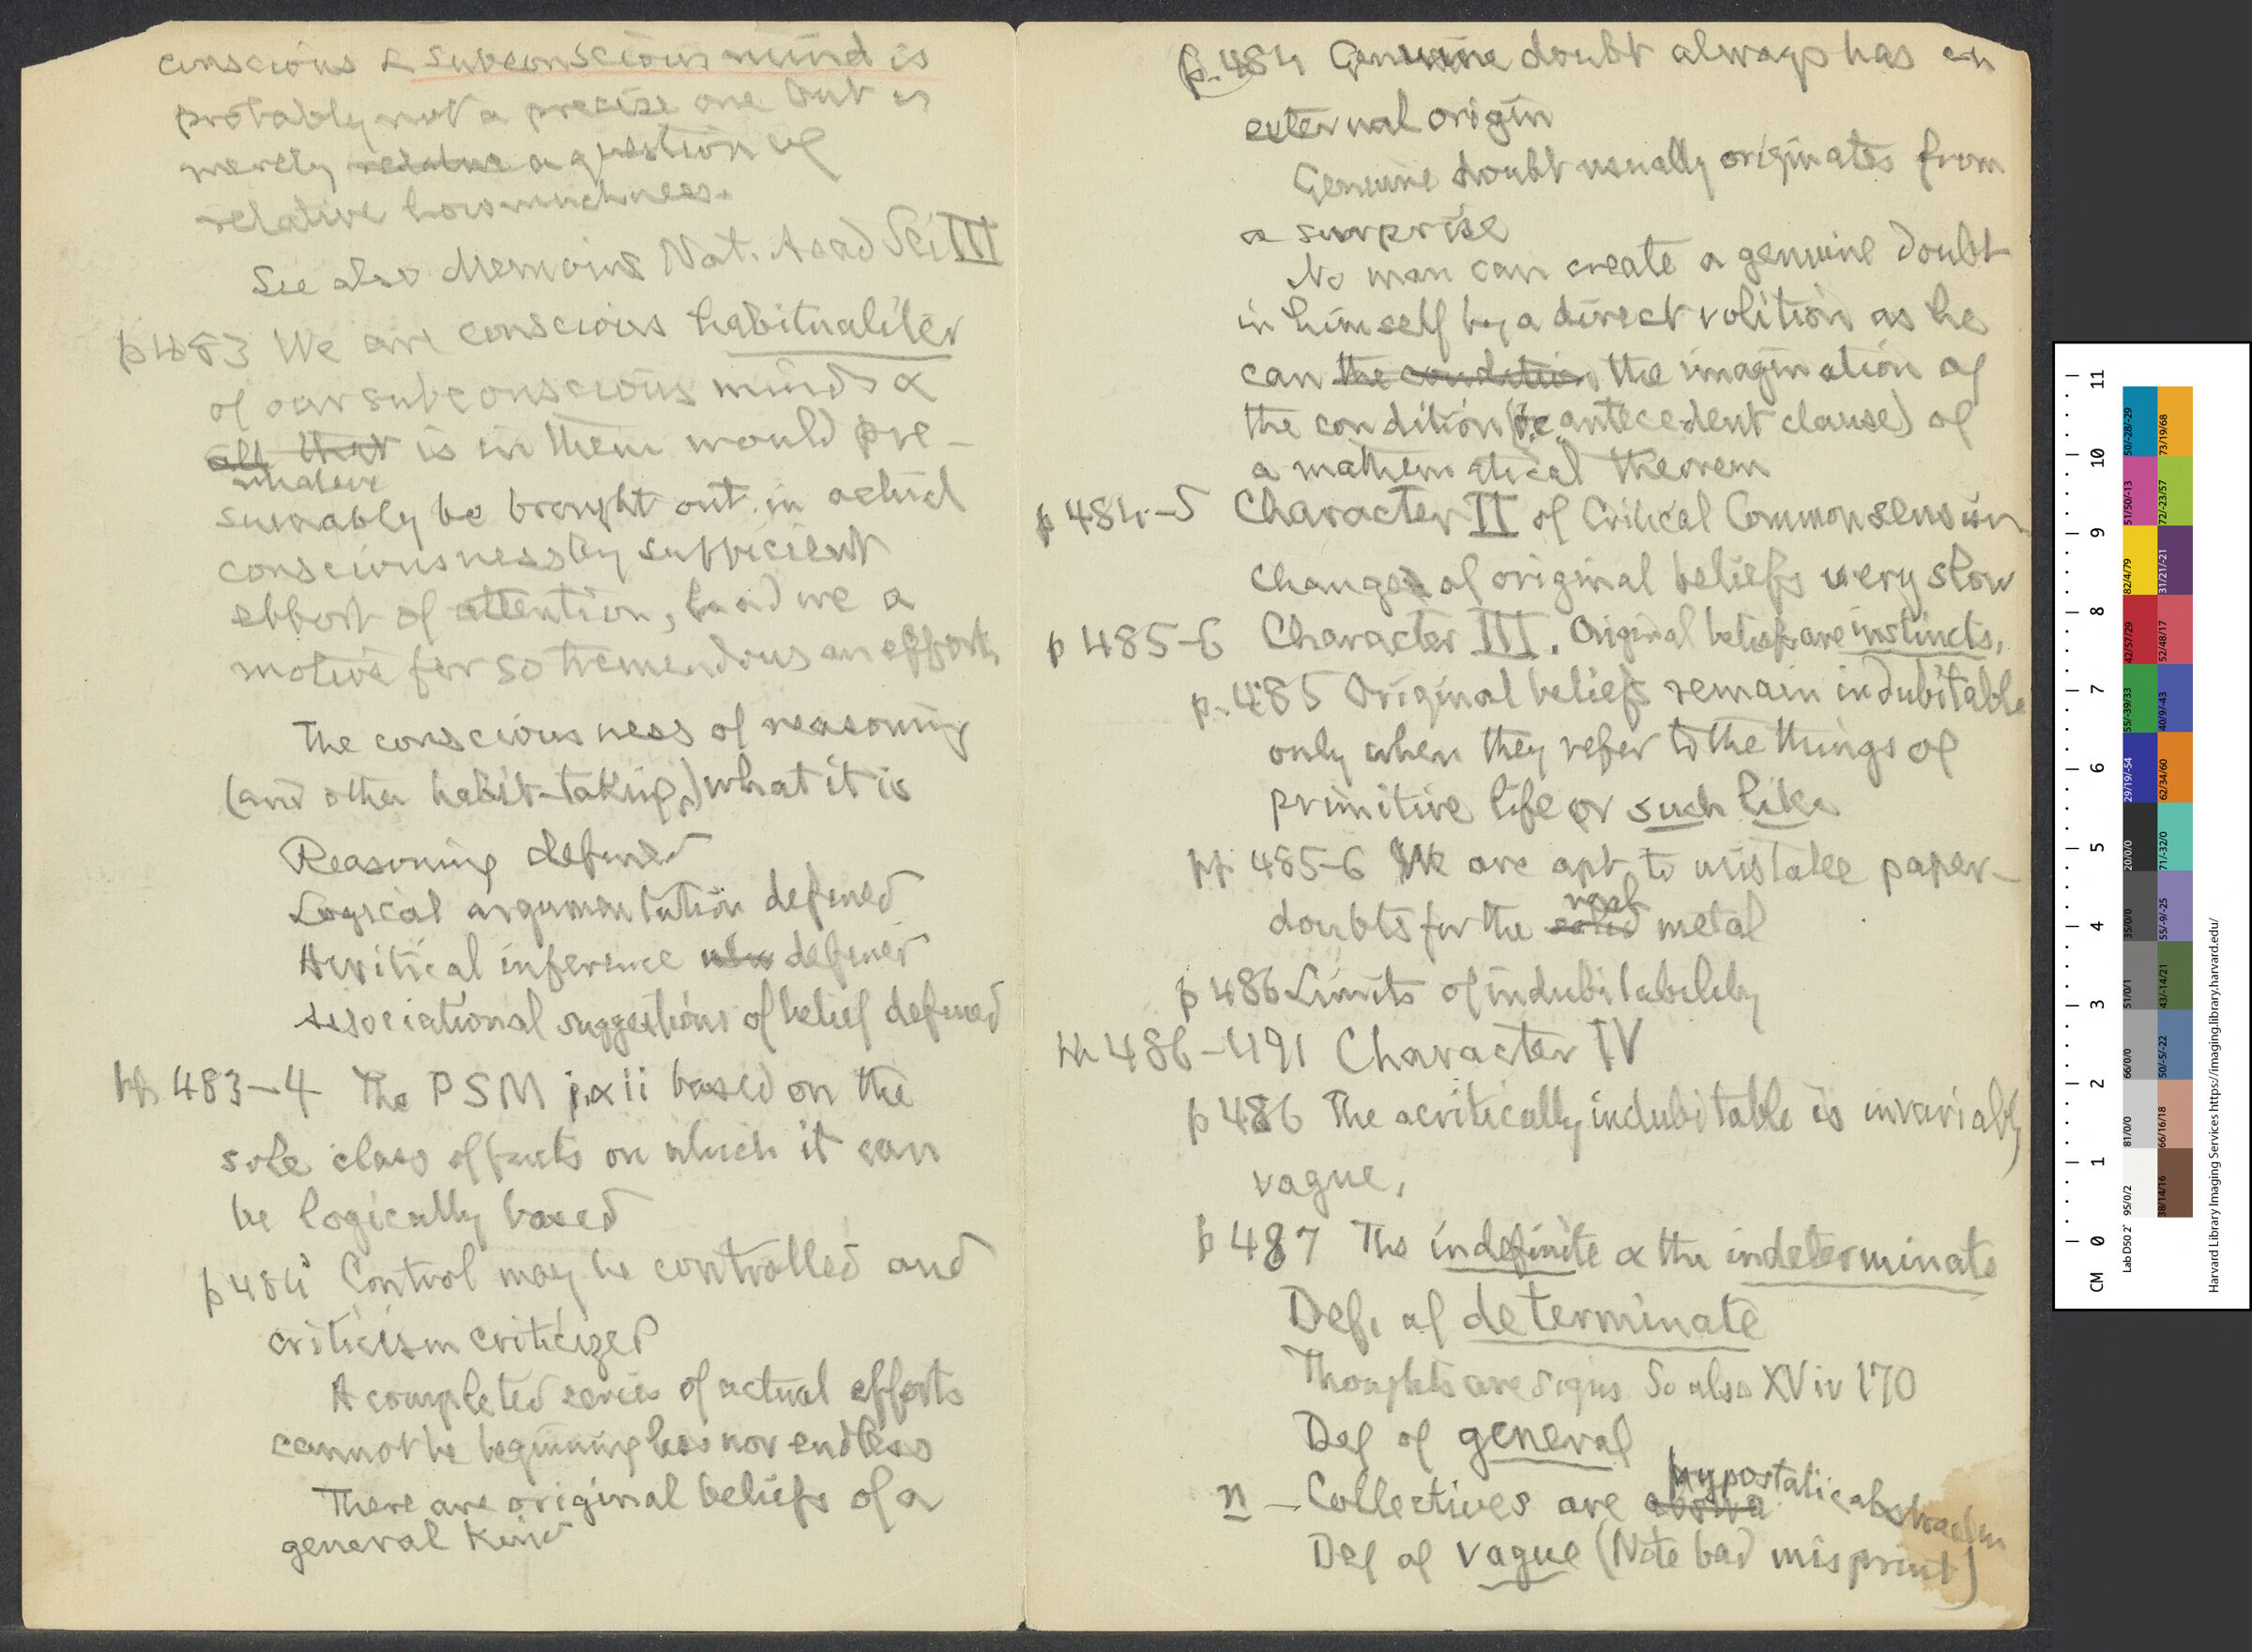 conscious & subconscious mind is
probably not a precise one but is
merely relative a question of
relative howmuchness.
See also Memoirs Nat. Acad Sci III
p 483 We are conscious habitualiter
of our subconscious minds &
all that is in them would pre-
whatever
sumably be brought out in actual
consciousness by sufficient
effort of attention, had we a
motive for so tremendous an effort,
The consciousness of reasoning
(and other habit-taking,) what it is
Reasoning defined
Logical argumentation defined
Acritical inference also defined
Associational suggestions of belief defined
pp 483-4 The PSM based on the
sole class of facts on which it can
be logically based
p 484 Control may be controlled and
criticism criticized
A completed series of actual efforts
cannot be beginningless nor endless
There are original beliefs of a
general kind
p. 484 Genuine doubt always has an
external origin
Genuine doubt usually originates from
a surprise
No man can create a genuine doubt
in himself by a direct volition as he
can the condition the imagination of
the condition (ie antecedent clause) of
a mathematical theorem
p 484-5 Character II of Critical Commonsensism
Changes of original beliefs very slow
p 485-6 Character III. Original beliefs are instincts.
p. 485 Original beliefs remain indubitable
only when they refer to the things of
primitive life or such like
pp 485-6 We are apt to mistake paper-
real
doubts for the solid metal
p 486 Limits of indubitability
pp 486-491 Character IV
p 486 The acritically indubitable is invariably
vague,
p 487 The indefinite & the indeterminate
Def. of determinate
Thoughts are signs So also XV iv 170
Def of general
hypostatic abstraction
n - Collectives are
Def of vague (Note bad misprint)
CM 0 1 2 3 4 5 6 7 8 9 10 11
Lab D50 2° 95/0/2 81/0/0 66/0/0 51/0/1 35/0/0 20/0/0 29/19/-54 55/-39/33 42/57/29 82/4/79 51/50/-13 50/-28/-29
38/14/16 66/16/18 50/-5/-22 43/-14/21 55/-9/-25 71/-32/0 62/34/60 40/9/-43 52/48/17 31/21/-21 72/-23/57 73/19/68
Harvard Library Imaging Services https://imaging.library.harvard.edu/